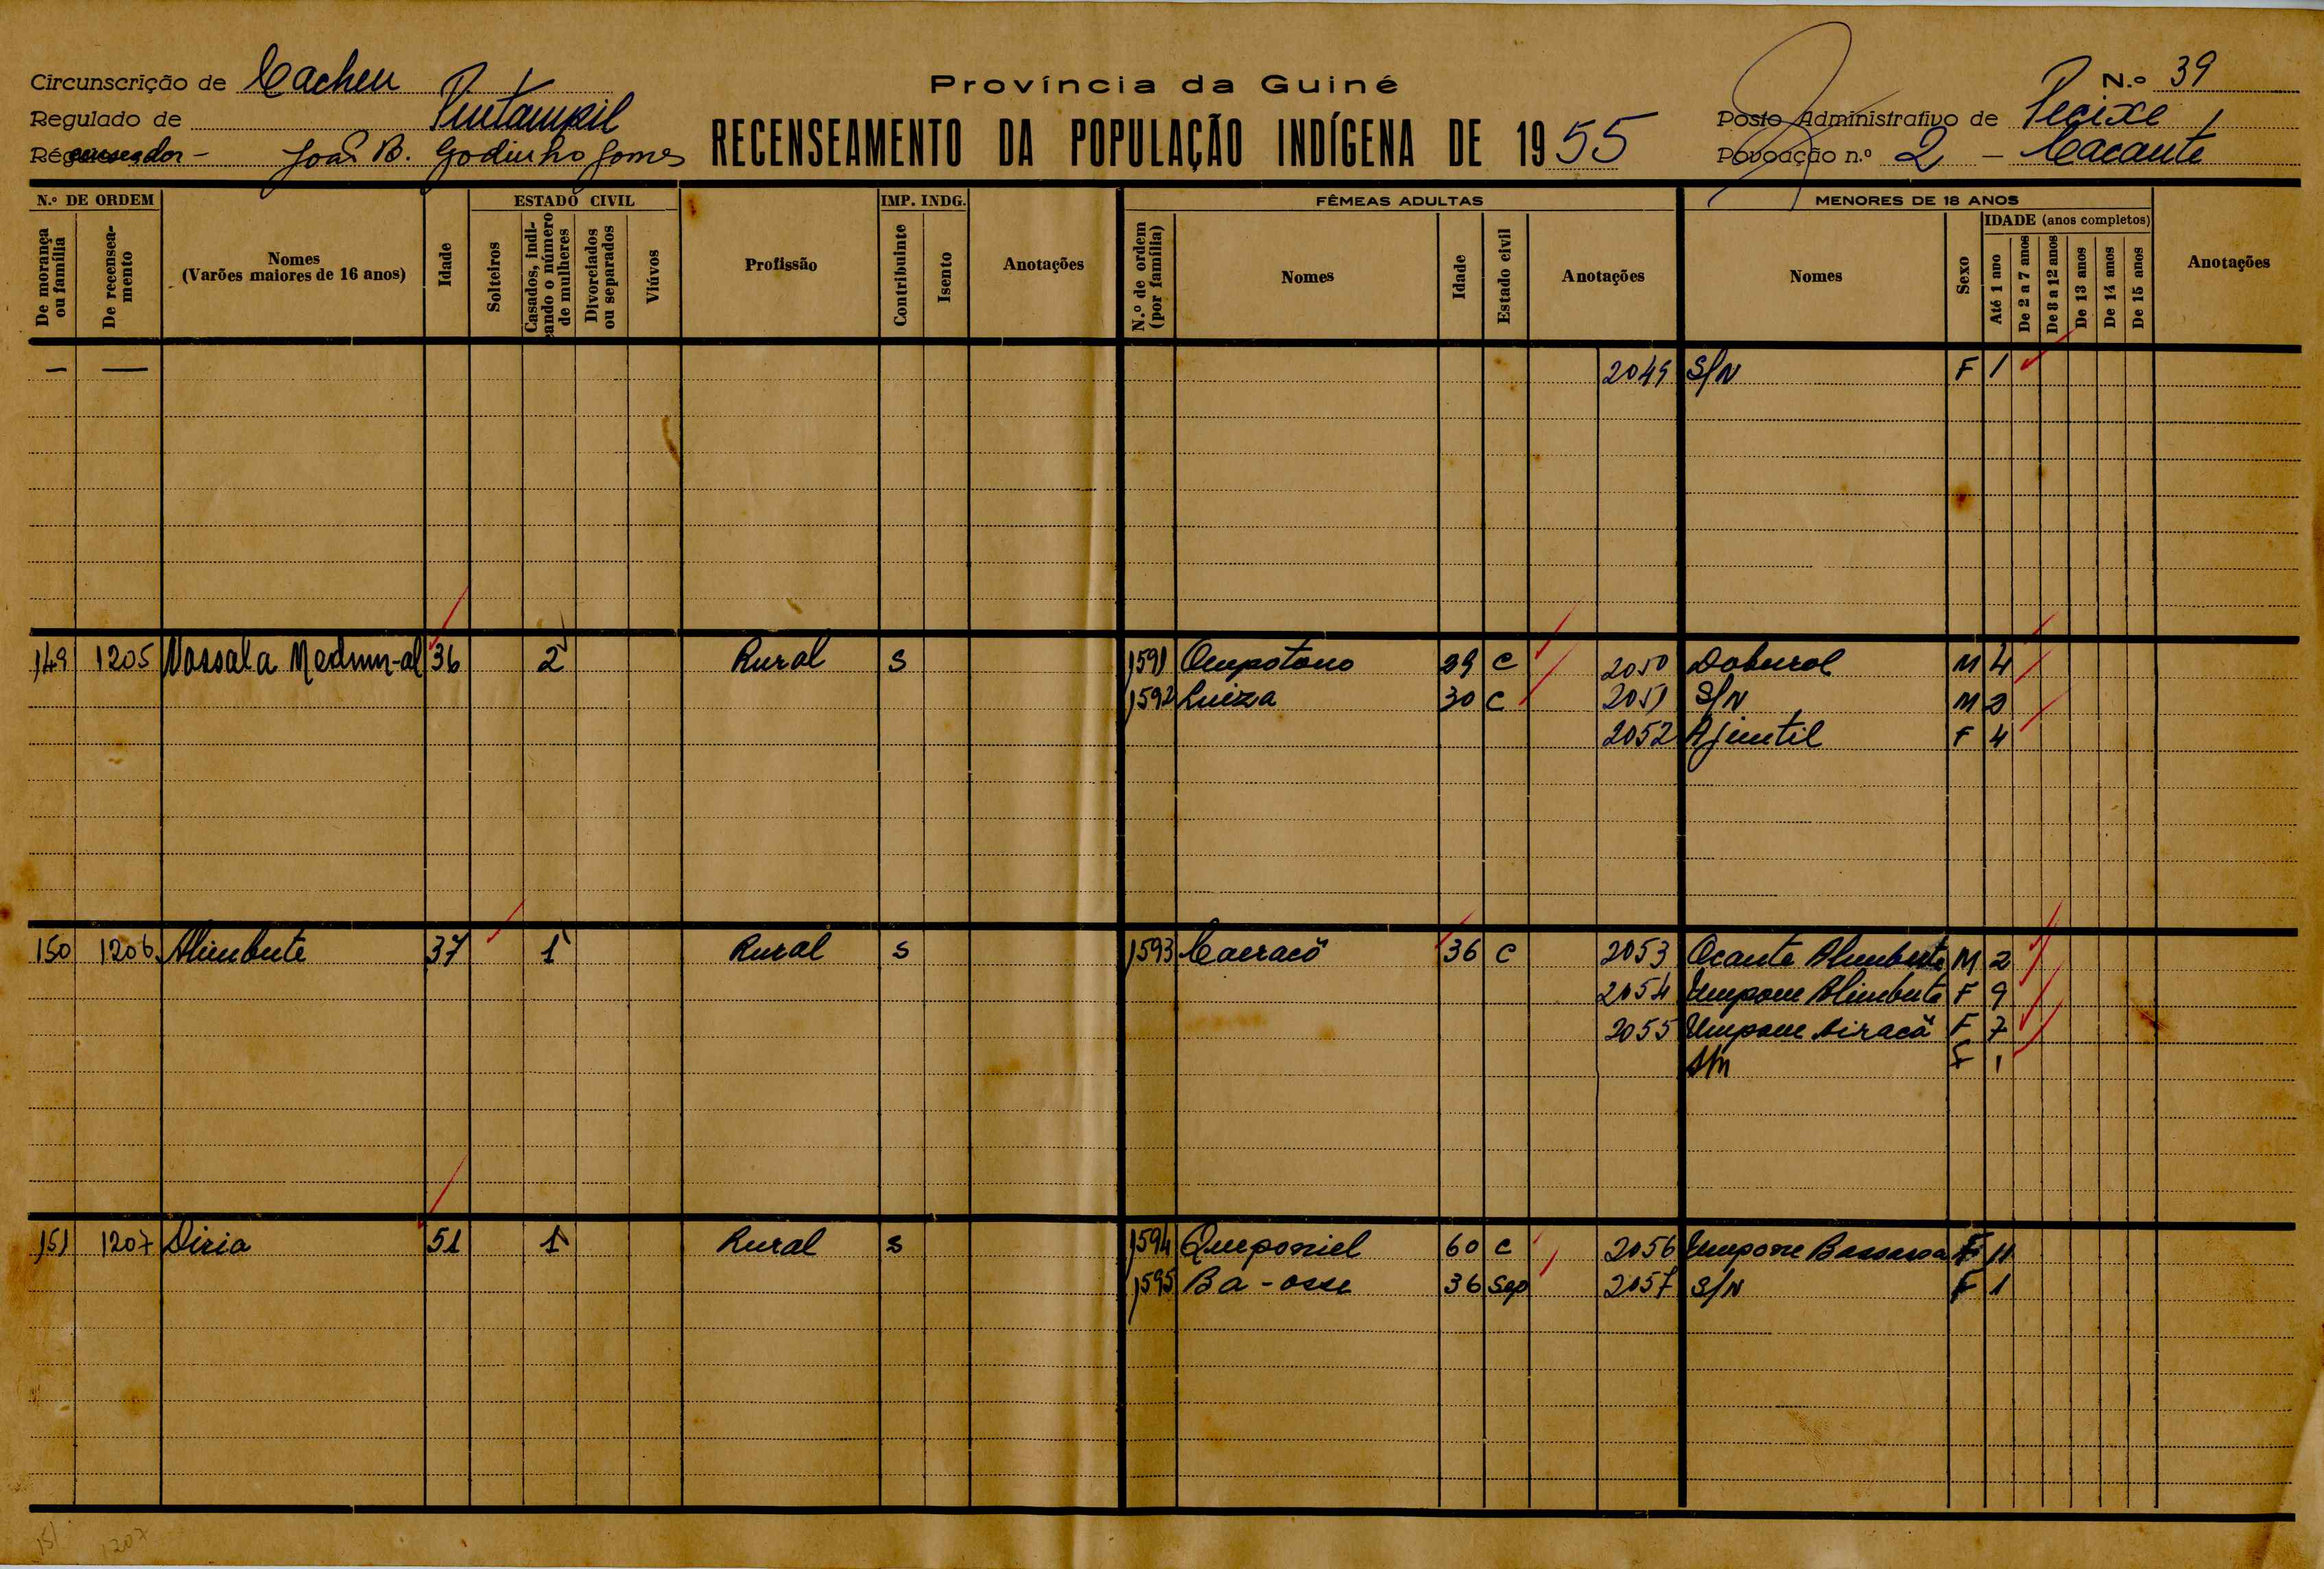 Circunscrição de Cacheu
Província da Guiné
N.º 39
Regulado de Pintampil
Posto Administrativo de Pecixe
Recenseador - João B. Godinho Gomes
RECENSEAMENTO DA POPULAÇÃO INDÍGENA DE 1955
Povoação n.º 2 - Cacante
N.º DE ORDEM
De morança ou família
De recenseamento
Nomes
(Varões maiores de 16 anos)
Idade
ESTADO CIVIL
Solteiros
Casados, indicando o número de mulheres
Divorciados ou separados
Viúvos
Profissão
IMP. INDG.
Contribuinte
Isento
Anotações
FÊMEAS ADULTAS
N.º de ordem (por família)
Nomes
Idade
Estado civil
Anotações
MENORES DE 18 ANOS
Nomes
Sexo
IDADE (anos completos)
Até 1 ano
De 2 a 7 anos
De 8 a 12 anos
De 13 anos
De 14 anos
De 15 anos
Anotações
— — 2049 S/N F 1
149 1205 Nassala Mednun-al 36 2 Rural S 1591 Ompotono 39 C 2050 Doburol M 4
1592 Luiza 30 C 2051 S/N M 2
2052 Ajuntil F 4
150 1206 Alimbute 37 1 Rural S 1593 Cacracô 36 C 2053 Ocante Alimbute M 2
2054 Umpone Alimbute F 9
2055 Umpone Airacã F 7
S/n F 1
151 1207 Diria 51 1 Rural S 1594 Queponiel 60 C 2056 Umpone Bassassa F 11
1595 Ba-osse 36 Sep 2057 S/N F 1
151 1207